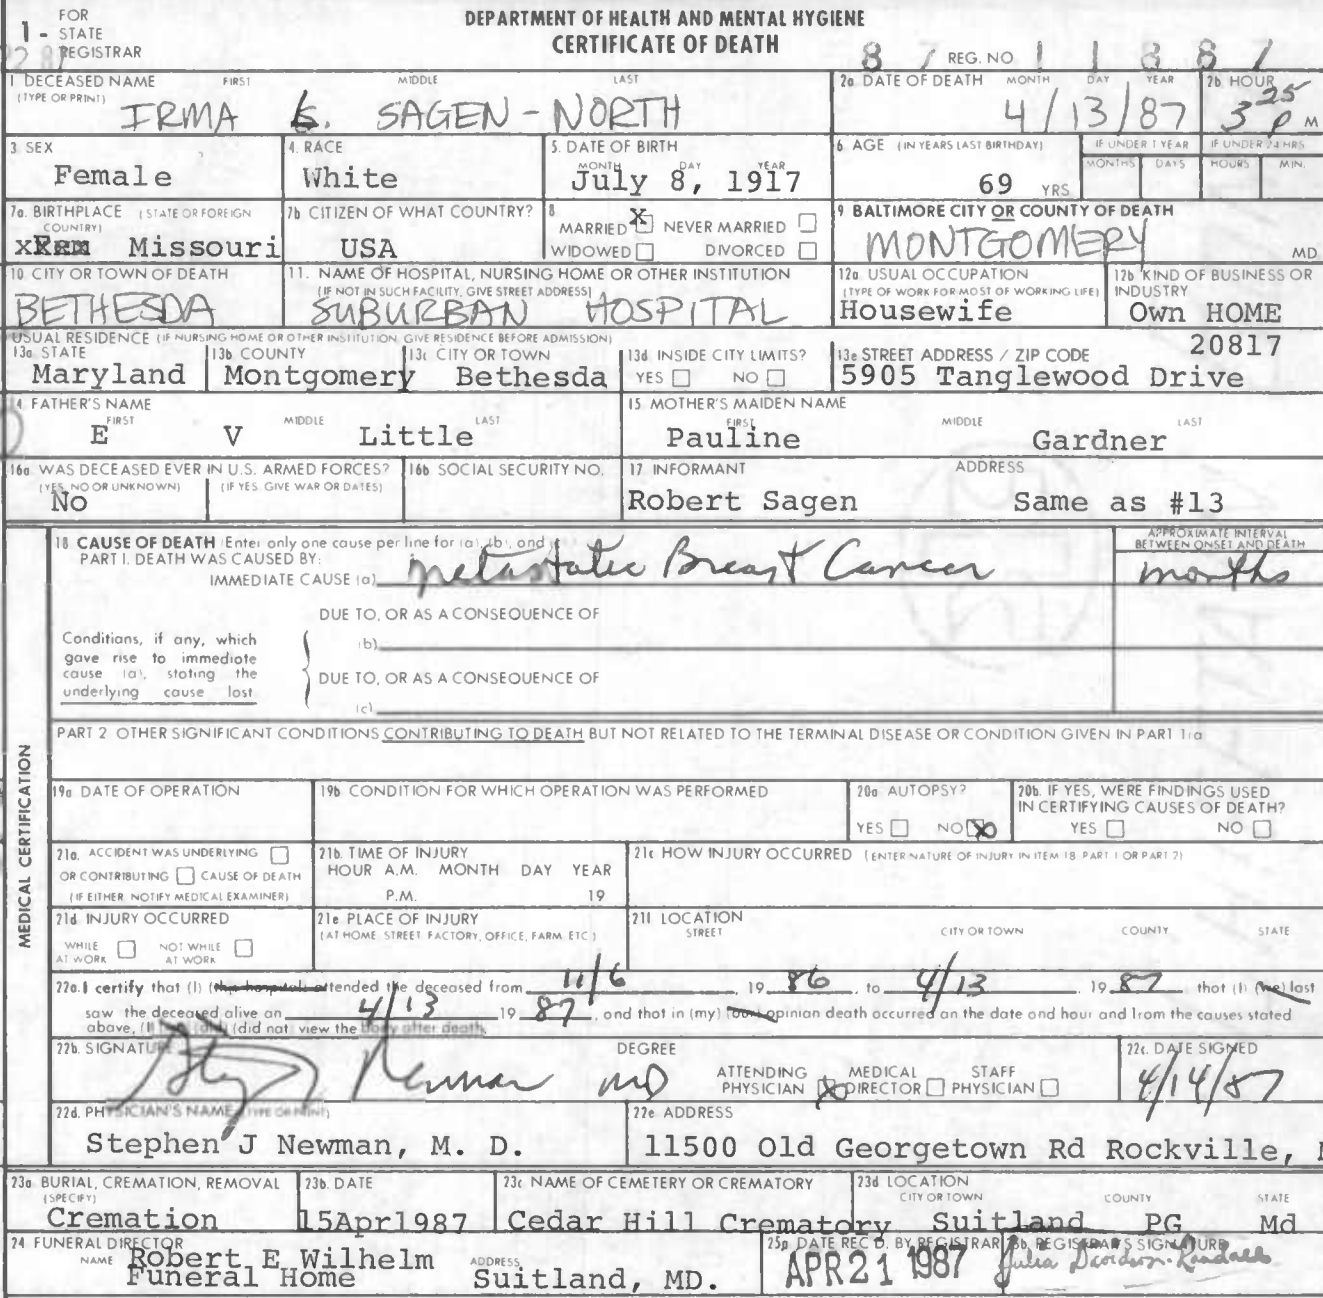 FOR
1 - STATE
REGISTRAR
DEPARTMENT OF HEALTH AND MENTAL HYGIENE
CERTIFICATE OF DEATH
REG. NO
8 7 1 1 8 8 7
1 DECEASED NAME FIRST MIDDLE LAST
(TYPE OR PRINT)
IRMA G. SAGEN - NORTH
2a DATE OF DEATH MONTH DAY YEAR
4/13/87
2b HOUR
3 25 P M
3 SEX
Female
4. RACE
White
5. DATE OF BIRTH
MONTH DAY YEAR
July 8, 1917
6 AGE (IN YEARS LAST BIRTHDAY)
69 YRS
IF UNDER 1 YEAR
MONTHS DAYS
IF UNDER 24 HRS
HOURS MIN.
7a. BIRTHPLACE (STATE OR FOREIGN
COUNTRY)
Missouri
7b CITIZEN OF WHAT COUNTRY?
USA
8
MARRIED X NEVER MARRIED
WIDOWED DIVORCED
9 BALTIMORE CITY OR COUNTY OF DEATH
MONTGOMERY MD
10 CITY OR TOWN OF DEATH
BETHESDA
11. NAME OF HOSPITAL, NURSING HOME OR OTHER INSTITUTION
(IF NOT IN SUCH FACILITY, GIVE STREET ADDRESS)
SUBURBAN HOSPITAL
12a. USUAL OCCUPATION
(TYPE OF WORK FOR MOST OF WORKING LIFE)
Housewife
12b KIND OF BUSINESS OR
INDUSTRY
Own HOME
USUAL RESIDENCE (IF NURSING HOME OR OTHER INSTITUTION GIVE RESIDENCE BEFORE ADMISSION)
13a STATE
Maryland
13b COUNTY
Montgomery
13c CITY OR TOWN
Bethesda
13d INSIDE CITY LIMITS?
YES NO
13e STREET ADDRESS / ZIP CODE
20817
5905 Tanglewood Drive
14 FATHER'S NAME
FIRST MIDDLE LAST
E V Little
15 MOTHER'S MAIDEN NAME
FIRST MIDDLE LAST
Pauline Gardner
16a WAS DECEASED EVER IN U.S. ARMED FORCES?
(YES, NO OR UNKNOWN) (IF YES GIVE WAR OR DATES)
No
16b SOCIAL SECURITY NO.
17 INFORMANT ADDRESS
Robert Sagen Same as #13
MEDICAL CERTIFICATION
18 CAUSE OF DEATH (Enter only one cause per line for (a), (b), and
PART I. DEATH WAS CAUSED BY:
IMMEDIATE CAUSE (a) metastatic Breast Cancer
APPROXIMATE INTERVAL
BETWEEN ONSET AND DEATH
months
DUE TO, OR AS A CONSEQUENCE OF
(b)
Conditions, if any, which
gave rise to immediate
cause (a), stating the
underlying cause lost
DUE TO, OR AS A CONSEQUENCE OF
(c)
PART 2 OTHER SIGNIFICANT CONDITIONS CONTRIBUTING TO DEATH BUT NOT RELATED TO THE TERMINAL DISEASE OR CONDITION GIVEN IN PART 1(a)
19a DATE OF OPERATION
19b CONDITION FOR WHICH OPERATION WAS PERFORMED
20a AUTOPSY?
YES NO X
20b. IF YES, WERE FINDINGS USED
IN CERTIFYING CAUSES OF DEATH?
YES NO
21a. ACCIDENT WAS UNDERLYING
OR CONTRIBUTING CAUSE OF DEATH
(IF EITHER NOTIFY MEDICAL EXAMINER)
21b. TIME OF INJURY
HOUR A.M. MONTH DAY YEAR
P.M. 19
21c HOW INJURY OCCURRED (ENTER NATURE OF INJURY IN ITEM 18 PART 1 OR PART 2)
21d INJURY OCCURRED
WHILE NOT WHILE
AT WORK AT WORK
21e PLACE OF INJURY
(AT HOME STREET FACTORY, OFFICE, FARM ETC)
21f LOCATION
STREET CITY OR TOWN COUNTY STATE
22a. I certify that (I) (this hospital) attended the deceased from 11/6 19 86, to 4/13 19 87 that (I) (we) last
saw the deceased alive on 4/13 19 87, and that in (my) (our) opinion death occurred on the date and hour and from the causes stated
above, (I) (did not) view the body after death.
22b. SIGNATURE DEGREE
Stephen Newman MD
ATTENDING MEDICAL STAFF
PHYSICIAN X DIRECTOR PHYSICIAN
22c. DATE SIGNED
4/14/87
22d. PHYSICIAN'S NAME (TYPE OR PRINT)
Stephen J Newman, M. D.
22e ADDRESS
11500 Old Georgetown Rd Rockville,
23a BURIAL, CREMATION, REMOVAL
(SPECIFY)
Cremation
23b. DATE
15Apr1987
23c NAME OF CEMETERY OR CREMATORY
Cedar Hill Crematory
23d LOCATION
CITY OR TOWN COUNTY STATE
Suitland PG Md
24 FUNERAL DIRECTOR
NAME Robert E Wilhelm
Funeral Home
ADDRESS
Suitland, MD.
25a DATE REC'D. BY REGISTRAR
APR 21 1987
25b REGISTRAR'S SIGNATURE
Julia Davidson-Randall